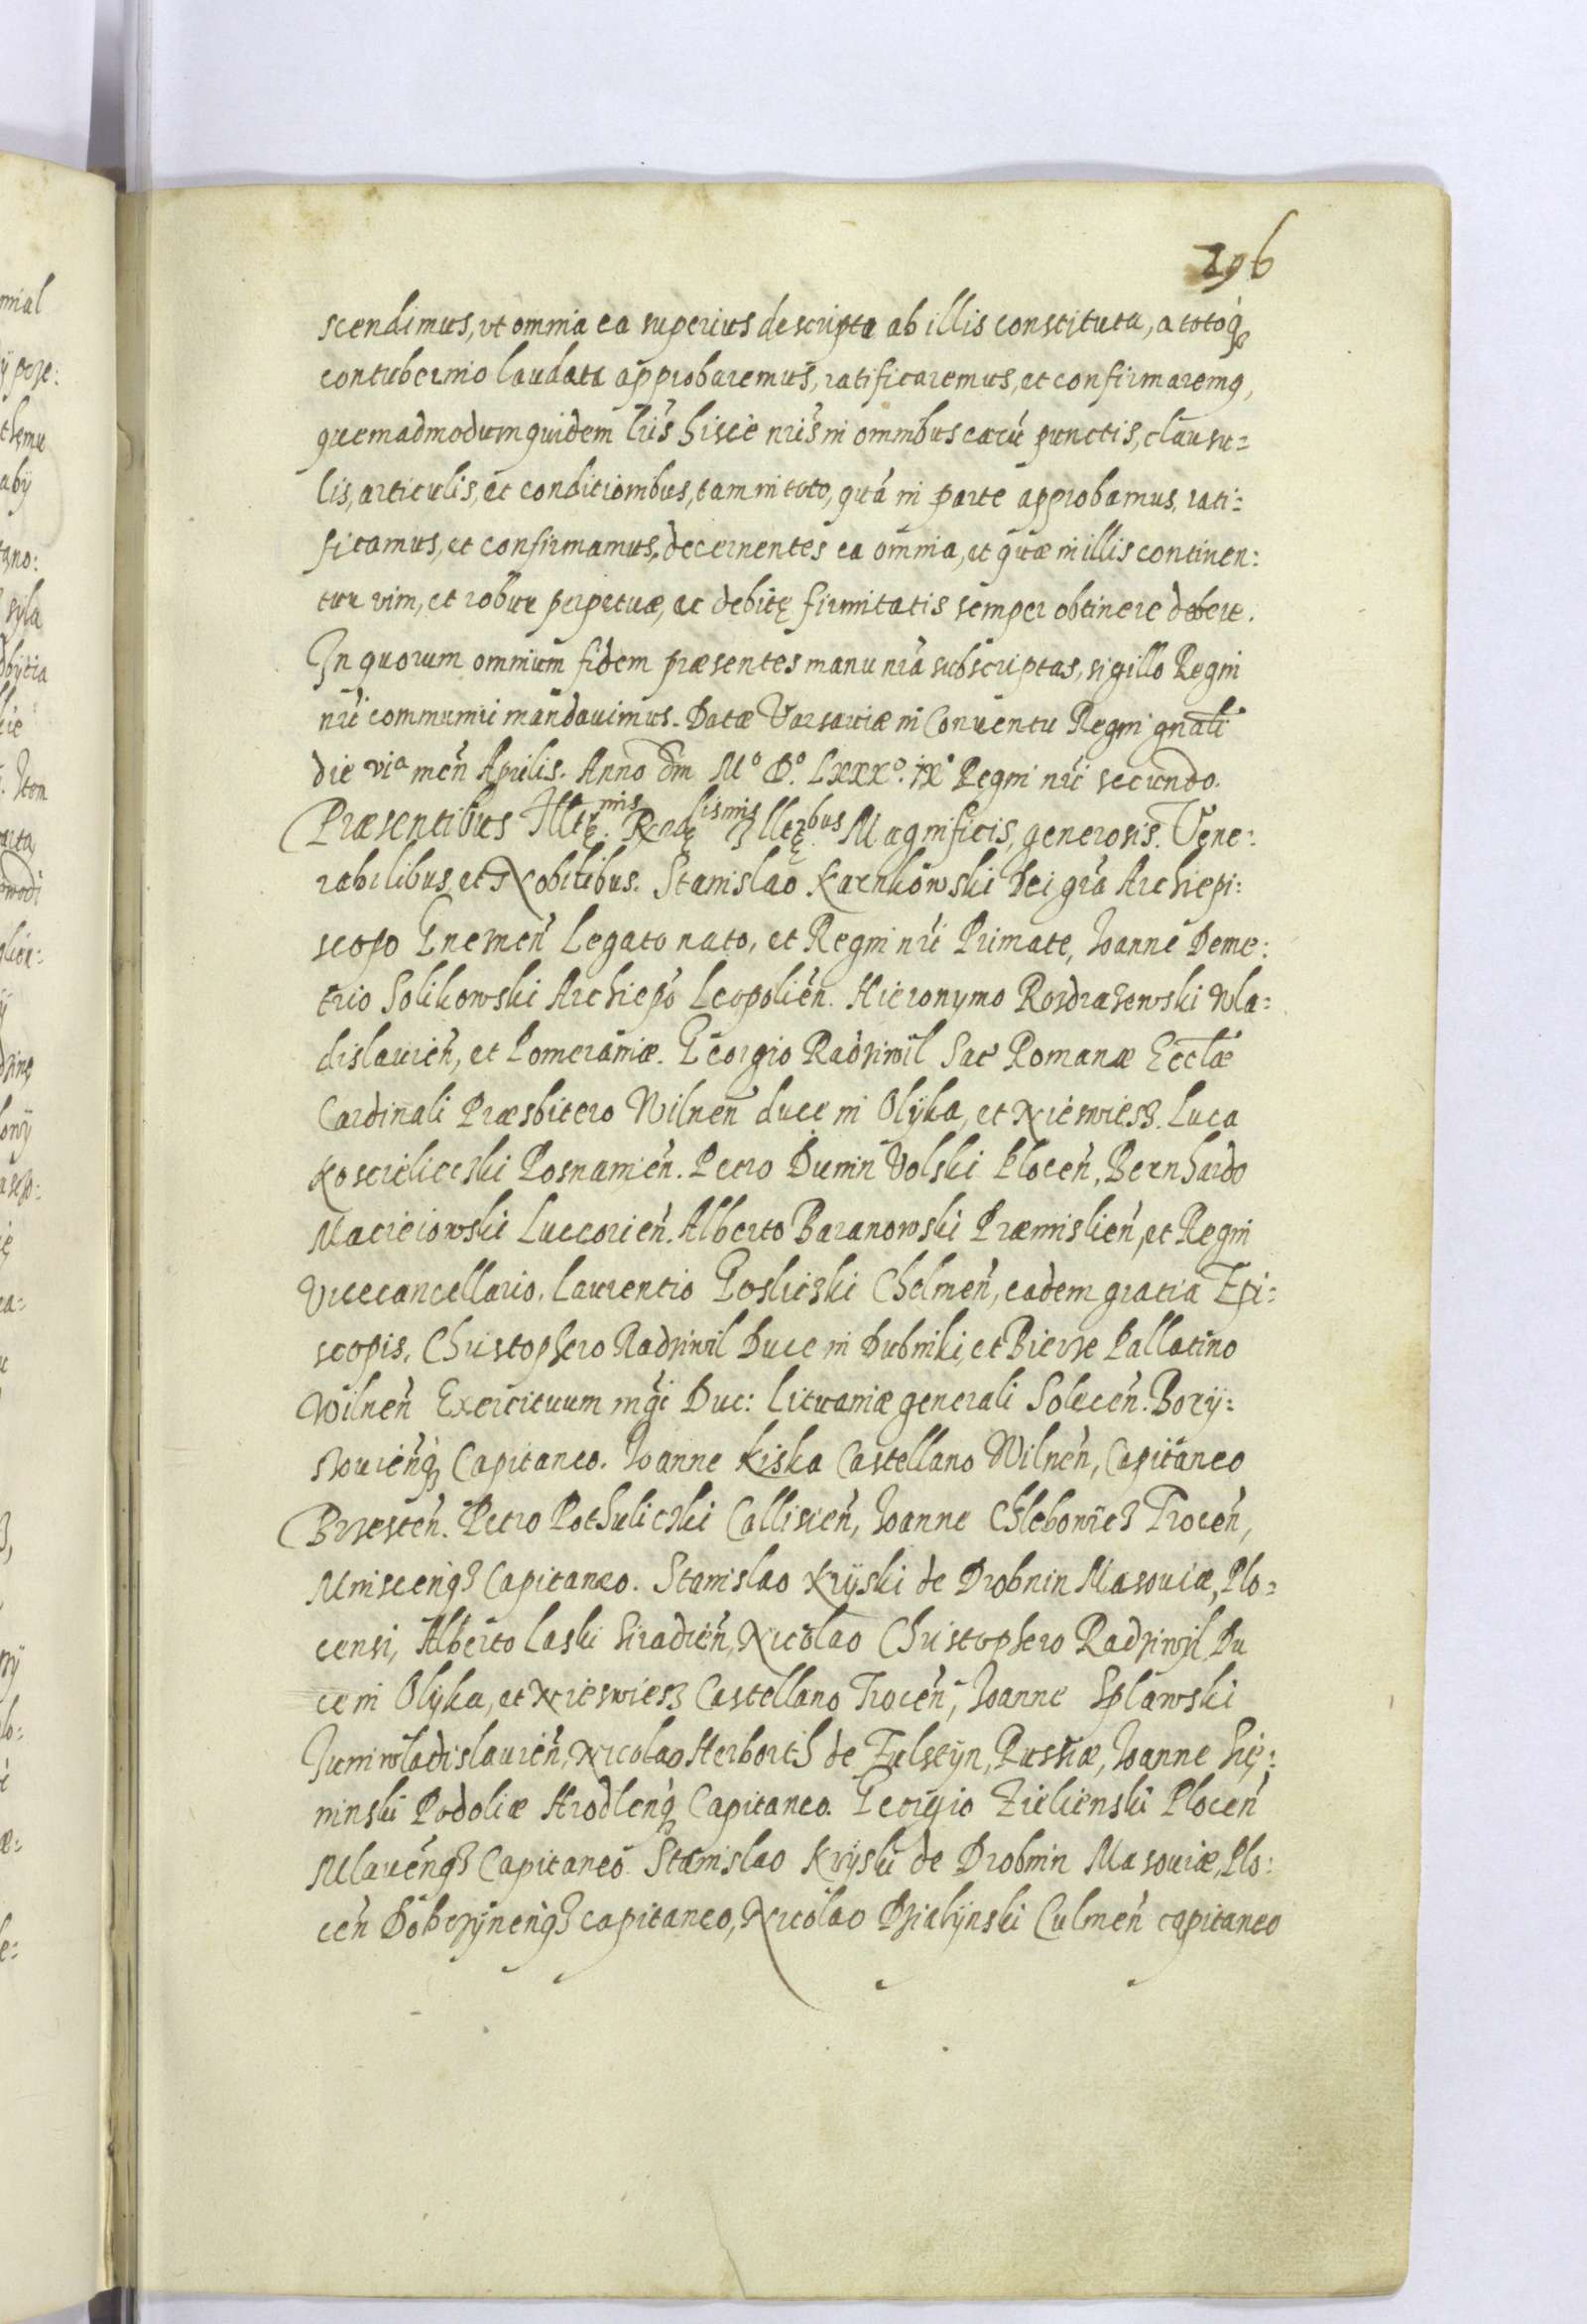 296
scendimus, vt omnia ea superius descripta ab illis constituta, a totoq́;
contubernio laudata approbaremus, ratificaremus, et confirmaremq,
quemadmodum quidem l̃ris hisce nr̃is in omnibus earũ punctis, clausu=
lis, articulis, ac conditionibus, tam in toto, quã in parte approbamus, rati=
ficamus, et confirmamus, decernentes ea omnia, et quæ in illis continen:
tur vim, et robur perpetuæ, ac debitę firmitatis semper obtinere debere.
In quorum omnium fidem præsentes manu nr̃a subscriptas, sigillo Regni
nr̃i communiri mandauimus. Datæ Varsauiæ in Conuentu Regni gñali
die viª men̄ Aprilis. Anno Dm̃ Mº Dº. Lxxxº. ixº Regni nr̃i secundo.
Præsentibus Magnificis, generosis. Vene:
rabilibus, et Nobilibus. Stanislao Karnkowski Dei gr̃a Archiepi:
scopo Gnesnen̄ Legato nato, et Regni nr̃i Primate, Ioanne Deme:
trio Solikowski Archiep̃o Leopolien̄. Hieronymo Rozdrazewski Wla=
dislauien̄, et Pomeraniæ. Georgio Radziwil Sac̄ Romanæ Eccl̃æ
Cardinali Præsbitero Wilnen̄ duce in Olÿka, et Nieswiesz. Luca
Koscielicrski Posnanien̄. Petro Dunin Volski Plocen̄, Bernhardo
Macieiowski Luccorien̄. Alberto Baranowski Præmislien̄, et Regni
Vicecancellario. Laurentio Goslicski Chelmen̄, eadem gratia Epi:
scopis, Christophero Radziwil Duce in Dubinki, et Bierze Pallatino
Wilnen̄ Exercituum mg̃i Duc: Lituaniæ generali Solecen̄. Borÿ=
souien̄q; Capitaneo. Ioanne Kiska Castellano Wilnen̄, Capitaneo
Brzesten̄. Petro Pothulicski Callisien̄, Ioanne Chlebowicz Trocen̄,
Mniscenq; Capitaneo. Stanislao Krÿski de Drobnin Masouiæ, Plo=
censi, Alberto Laski Siradien̄, Nicolao Christophero Radziwÿl Du
ce in Olÿka, et Nieswiesz Castellano Trocen̄, Ioanne Splawski
Juniwladislauien̄, Nicolao Herborth de Fulstÿn, Russiæ, Ioanne Sie:
ninski Podoliæ Hrodlen̄q; Capitaneo. Georgio Zielienski Plocen̄
Mlauen̄q; Capitaneo Stanislao Krÿski de Drobnin Masouiæ, Plo:
cen̄ Dobrzÿnen̄q; capitaneo, Nicolao Dzialÿnski Culmen̄ capitaneo